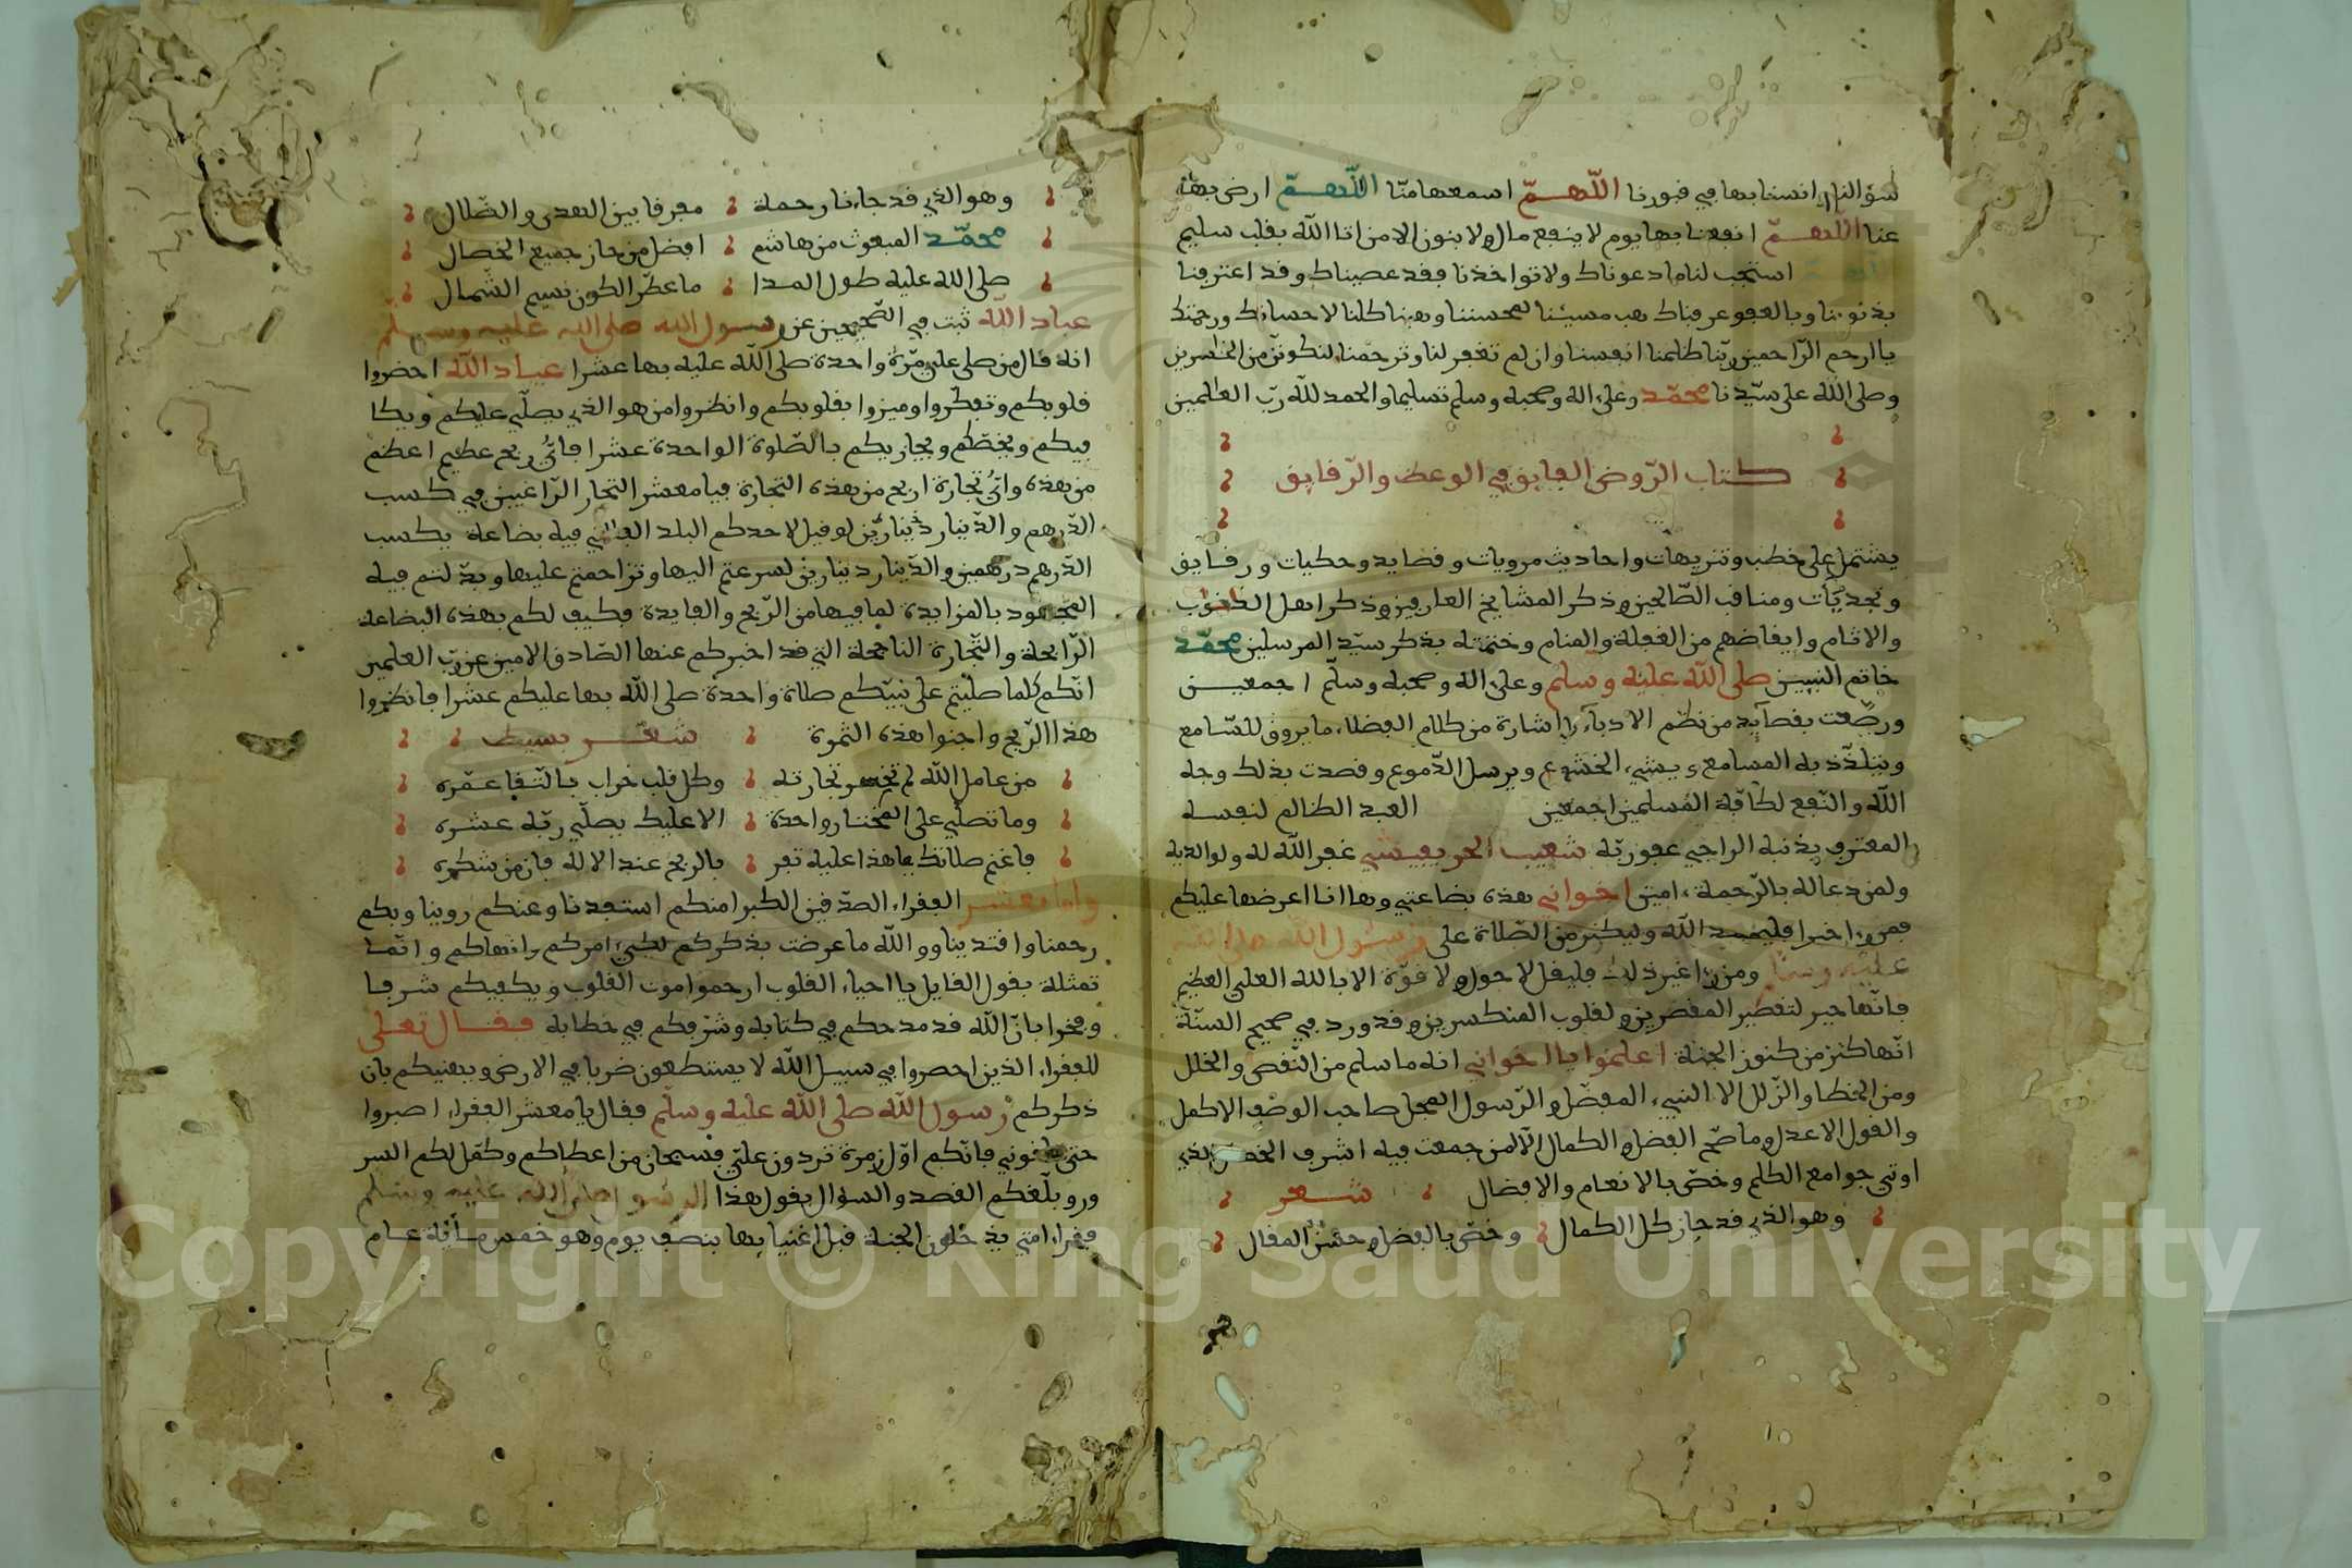 سؤالنا انسنا بها في قبورنا اللّهمّ اسمعها منّا اللّهمّ ارض بها
عنا اللهمّ انفعنا بها يوم لا ينفع مال ولا بنون الا من اتا الله بقلب سليم
استجب لنا ما دعوناك ولا تواخذنا فقد عصيناك وقد اعترفنا
بذنوبنا وبالعفو عرفناك هب مسيئنا لمحسننا وهبنا كلنا لاحسانك ورحمتك
يا ارحم الرّاحمين ربّنا ظلمنا انفسنا وان لم تغفر لنا وترحمنا لنكوننّ من الخسرين
وصلى اللّه على سيّدنا محمّد وعلى اله وصحبه وسلم تسليما والحمد للّه ربّ العلمين
كتاب الرّوض الفايق في الوعظ والرّقايق
يشتمل على خطب وتنزيهات واحاديث مرويات وقصايد وحكيات ورقايق
ونجديّات ومناقب الصّالحين وذكر المشايخ العارفين وذكر اهل الذنوب
والاثام وايقاضهم من الغفلة والمنام وختمته بذكر سيّد المرسلين محمّد
خاتم النبيين صلى اللّه عليه وسلم وعلى اله وصحبه وسلّم اجمعين
ورصّعت بقصايد من نظم الادباء اشارة من كلام الفضلاء ما يروق للسّامع
ويتلذّذ به المسامع وينشي الخشوع ويرسل الدّموع وقصدت بذلك وجه
اللّه والنّفع لكافّة المسلمين اجمعين العبد الظالم لنفسه
المعترف بذنبه الراجي عفو ربّه شعيب الحريفيشي غفر اللّه له ولوالديه
ولمن دعا له بالرّحمة امين اخواني هذه بضاعتي وها انا اعرضها عليكم
فمن را خيرا فليحمد اللّه وليكثر من الصّلاة على رسول الله صلى الله
عليه وسلم ومن را غير ذلك فليقل لا حول ولا قوّة الا بالله العلي العظيم
فانّها جبر لتقصير المقصرين ولقلوب المنكسرين وقد ورد في صحيح السنّة
انّها كنز من كنوز الجنة اعلموا يا اخواني انه ما سلم من النّقص والخلل
ومن الخطا والزّلل الا النبي المفضّل والرّسول المبجل صاحب الوصف الاكمل
والقول الاعدل وما صّح الفضل والكمال الّا لمن جمعت فيه اشرف الخصال الذي
اوتي جوامع الكلم وخصّ بالانعام والافضال شعر
وهو الذي قد حاز كل الكمال وخصّ بالفضل وحسن المقال
وهو الذي قد جاءنا رحمة مفرقا بين الهدى والضّلال
محمّد المبعوث من هاشم افضل من حاز جميع الخصال
صلى الله عليه طول المدا ما عطّر الكون نسيم الشّمال
عباد اللّه ثبت في الصّحيحين عن رسول الله صلى الله عليه وسلّم
انه قال من صلى علي مرّة واحدة صلى اللّه عليه بها عشرا عباد اللّه احضروا
قلوبكم وتفكروا وميزوا بقلوبكم وانظروا من هو الذي يصلّي عليكم ويكا
فيكم ويحقكم ويجازيكم بالصّلوة الواحدة عشرا فايّ ربح عظيم اعظم
من هذه وايّ تجارة اربح من هذه التجارة فيا معشر التجار الرّاغبين في كسب
الدّرهم والدّينار دينارين لو قيل لاحدكم البلد الفلاني فيه بضاعة يكسب
الدّرهم درهمين والدّينار دينارين لسرعتم اليها وتزاحمتم عليها وبذلتم فيه
المجهود بالمزايدة لما فيها من الرّبح والفايدة فكيف لكم بهذه البضاعة
الرّابحة والتّجارة الناجحة التي قد اخبركم عنها الصّادق الامين عن ربّ العلمين
انّكم كلما صليتم على نبيّكم صلاة واحدة صلى اللّه بها عليكم عشرا فانظروا
هذا الرّبح واجنوا هذه الثمرة شعر بسيط
من عامل اللّه لم تخسر تجارته وكل قلب خراب بالتّقا عمّره
وما تصلّي على المختار واحدة الا عليك يصلّي ربّه عشره
فاغنم صلاتك يا هذا عليه تفز بالربح عند الاله فاز من شكره
واما معشر الفقراء الصدّقين الكبرا منكم استفدنا وعنكم روينا وبكم
رحمنا واقتدينا ووالله ما عرضت بذكركم لطي امركم وانهاكم وانّما
تمثلة بقول القايل يا احياء القلوب ارحموا موت القلوب ويكفيكم شرفا
وفخرا بانّ اللّه قد مدحكم في كتابه وشرّفكم في خطابه فقال تعالى
للفقراء الذين احصروا في سبيل اللّه لا يستطعون ضربا في الارض ويهنيكم بان
ذكركم رسول اللّه صلى اللّه عليه وسلّم فقال يا معشر الفقراء اصبروا
حتى تلقوني فانّكم اوّل زمرة تردون عليّ فسبحان من اعطاكم وكمّل لكم السر
ور وبلّغكم القصد والسؤال بقول هذا الرسول صلى الله عليه وسلم
فقراء امتي يدخلون الجنة قبل اغنيايها بنصف يوم وهو خمس مأئة عام
Copyright © King Saud University